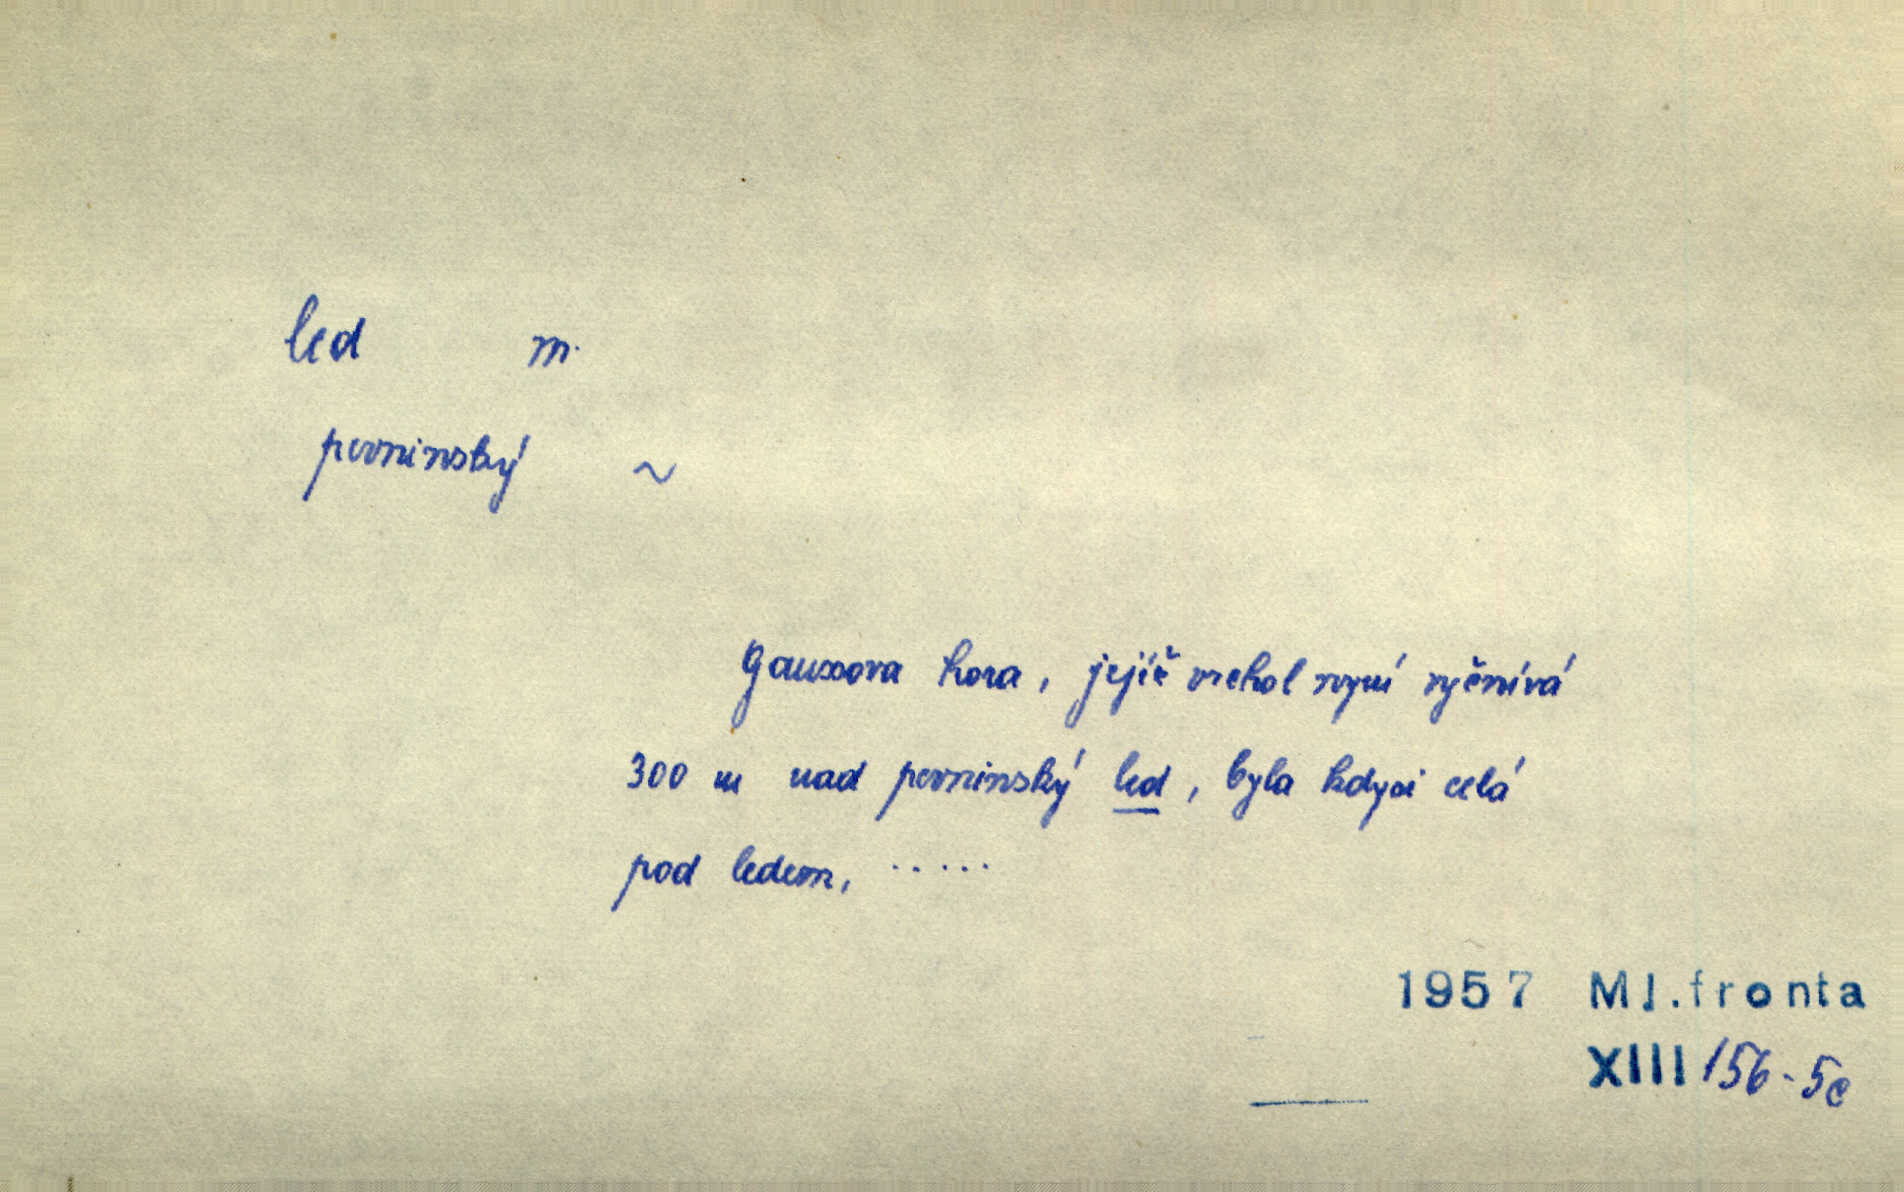 led m.
pevninský ~
Gaussova hora, jejíž vrchol nyní vyčnívá
300 m nad pevninský led, byla kdysi celá
pod ledem, .....
1957 Ml.fronta
XIII 156-5c